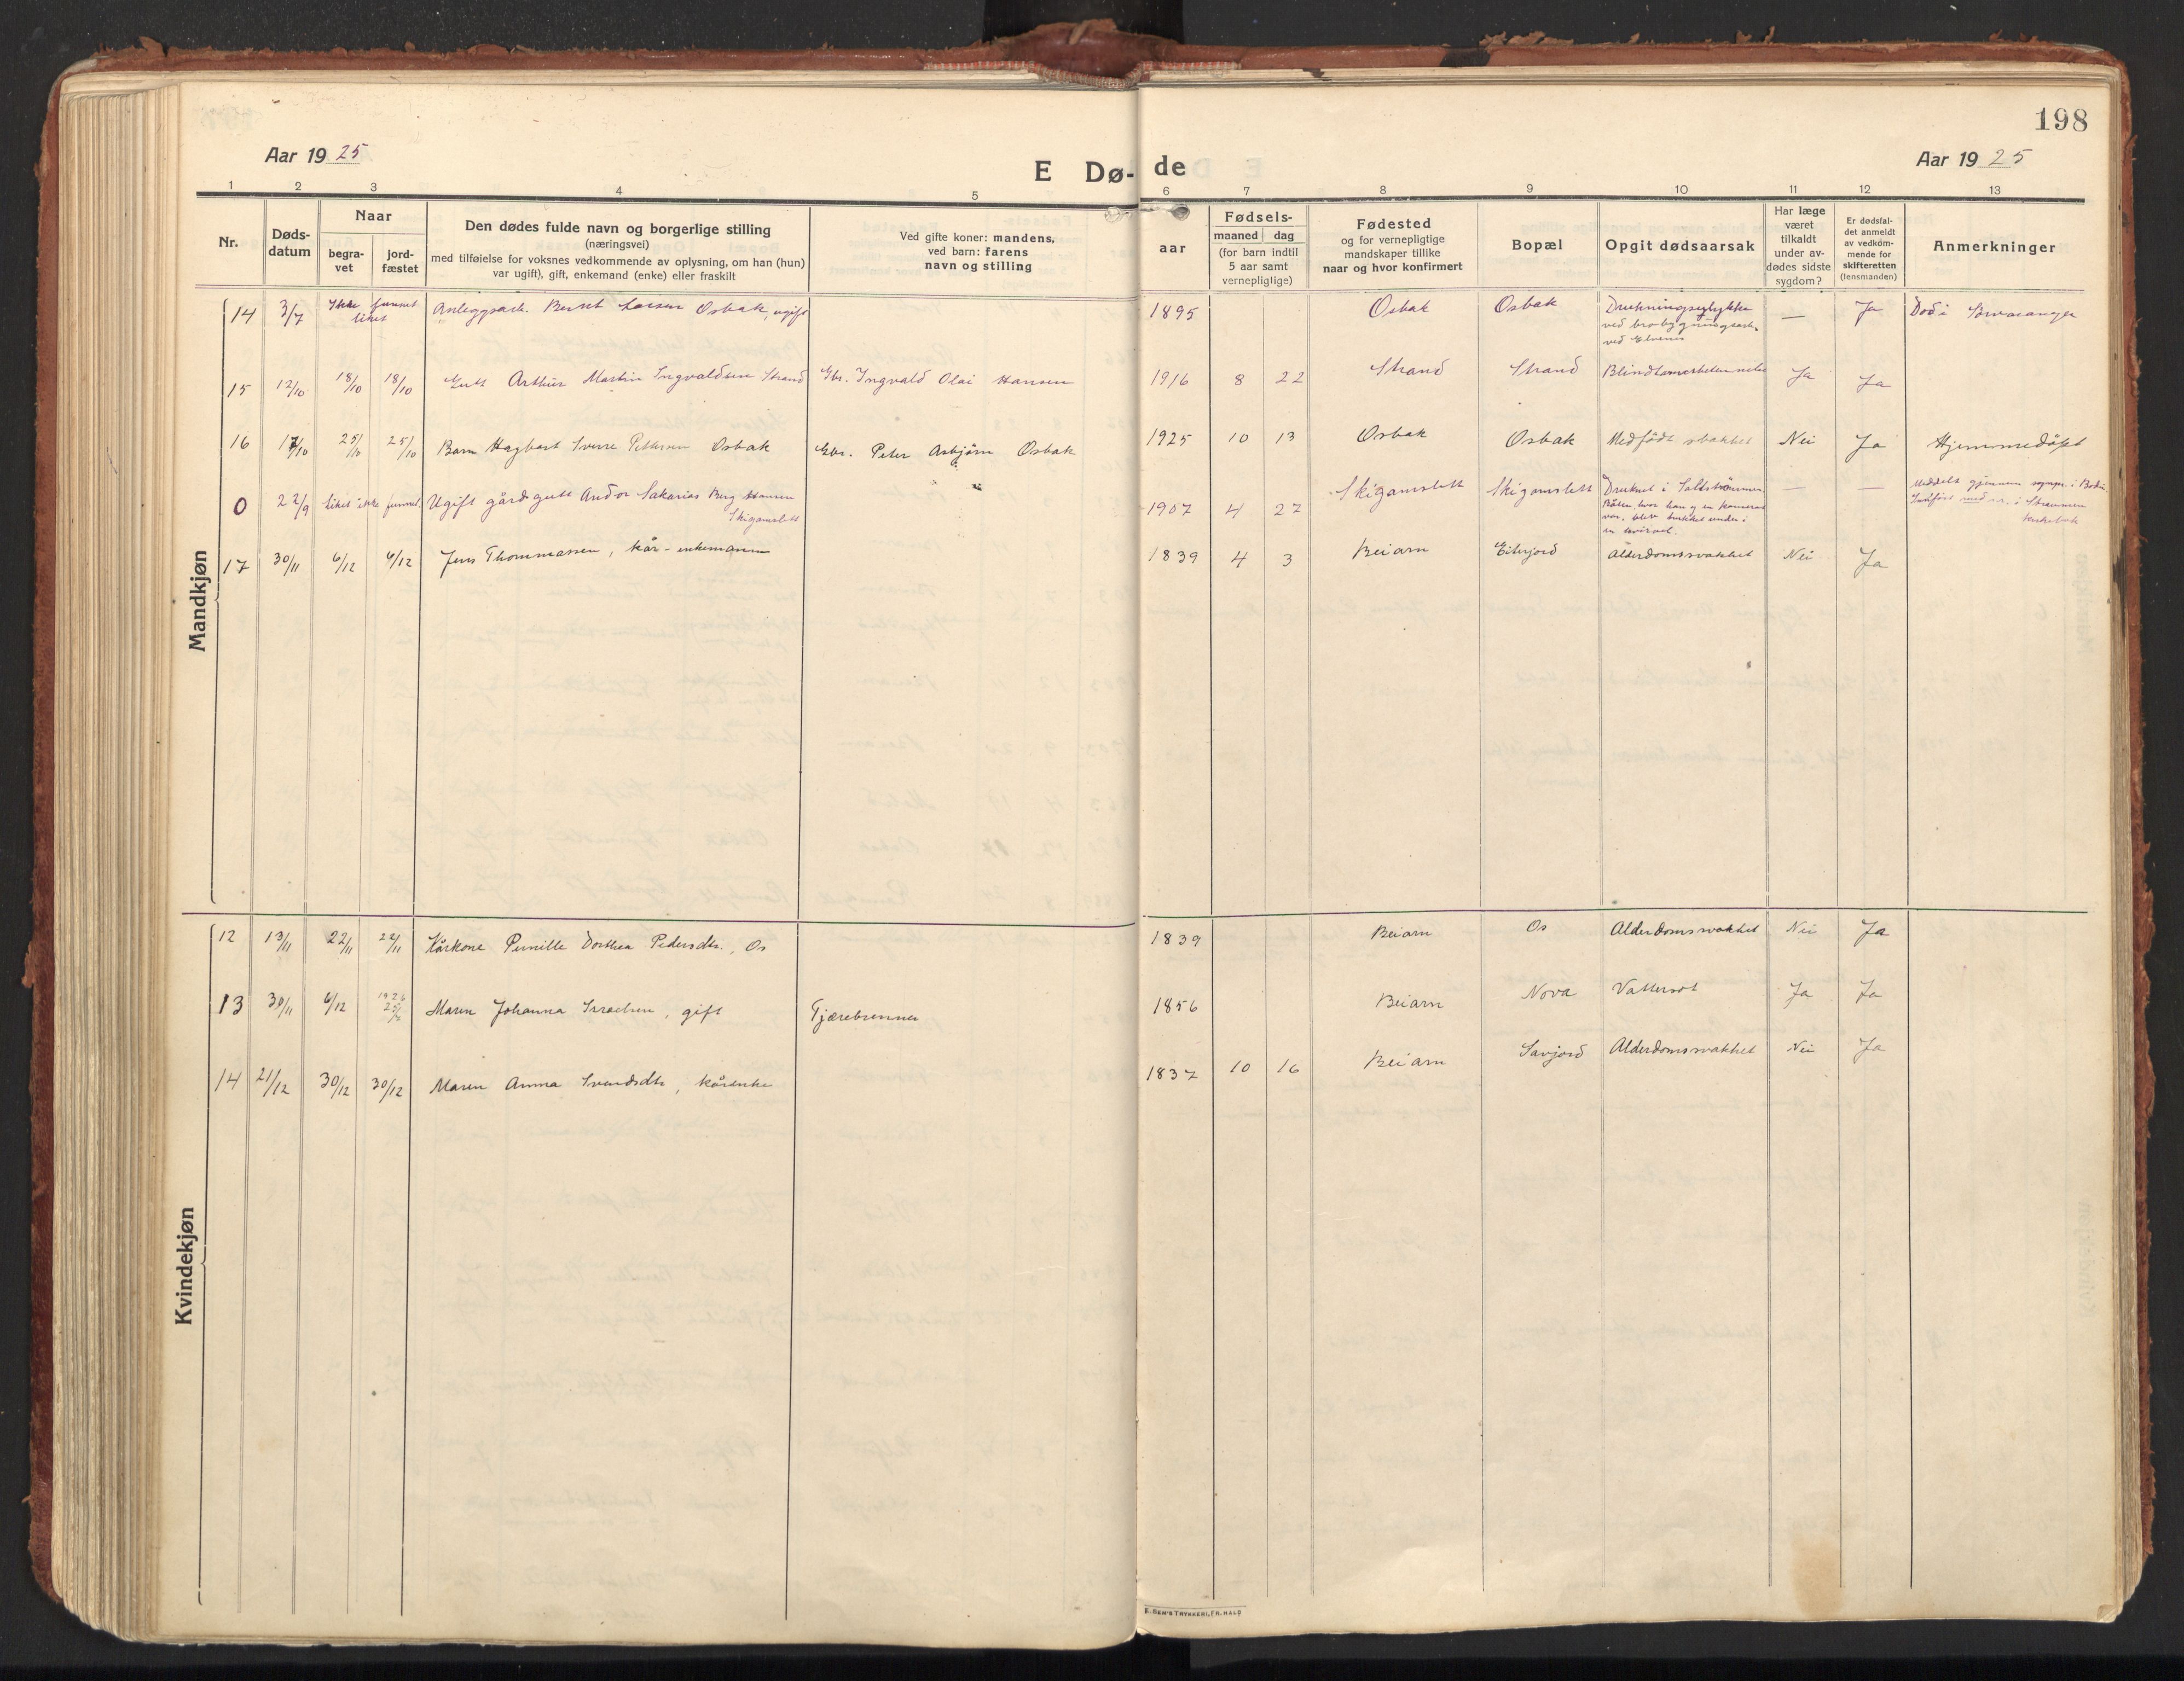 198
Aar 19 25
E Dø- de
Aar 19 25
1 2 3 4 5 6 7 8 9 10 11 12 13
Nr.
Døds-
datum
Naar
begra-
vet
jord-
fæstet
Den dødes fulde navn og borgerlige stilling
(næringsvei)
med tilføielse for voksnes vedkommende av oplysning, om han (hun)
var ugift), gift, enkemand (enke) eller fraskilt
Ved gifte koner: mandens,
ved barn: farens
navn og stilling
aar
Fødsels-
maaned dag
(for barn indtil
5 aar samt
vernepligtige)
Fødested
og for vernepligtige
mandskaper tillike
naar og hvor konfirmert
Bopæl
Opgit dødsaarsak
Har læge
været
tilkaldt
under av-
dødes sidste
sygdom?
Er dødsfal-
det anmeldt
av vedkom-
mende for
skifteretten
(lensmanden)
Anmerkninger
Mandkjøn
14 3/7 Ikke funnet Anleggsarb. Bernt Larsen Osbak, ugift 1895 Osbak Osbak Drukningsulykke — Ja Død i Sørvaranger
liket
ved brobygningsarb.
ved Elvenes
15 12/10 18/10 18/10 Gutt Arthur Martin Ingvaldsen Strand Gbr. Ingvald Olai Hansen 1916 8 22 Strand Strand Blindtarmsbetennelse Ja Ja
16 17/10 25/10 25/10 Barn Hagbart Sverre Pettersen Osbak Gbr. Peter Asbjørn Osbak 1925 10 13 Osbak Osbak Medfødt svakhet Nei Ja Hjemmedøpt
0 22/9 Liket ikke funnet. Ugift gårdsgutt Andor Sakarias Berg Hansen 1907 4 27 Skigamslett Skigamslett Druknet i Saltstrømmen — — Meddelt gjennem sognpr. i Bodin.
Skigamslett
Båten, hvor han og en kamerat
var, blev trukket under i
en hvirvel.
Innført med nr. i Strømmen
kirkebok
17 30/11 6/12 6/12 Jens Thommassen, kår-enkemann 1839 4 3 Beiarn Eiterjord Alderdomssvakhet Nei Ja
Kvindekjøn
12 13/11 22/11 22/11 Kårkone Pernille Dorthea Pedersdtr., Os 1839 Beiarn Os Alderdomssvakhet Nei Ja
13 30/11 6/12 1926 Maren Johanna Israelsen, gift Tjærebrenner 1856 Beiarn Nova Vattersot Ja Ja
14 21/12 30/12 30/12 Maren Anna Svendsdtr, kårenke 1837 10 16 Beiarn Savjord Alderdomssvakhet Nei Ja
E. SEM'S TRYKKERI, FR.HALD